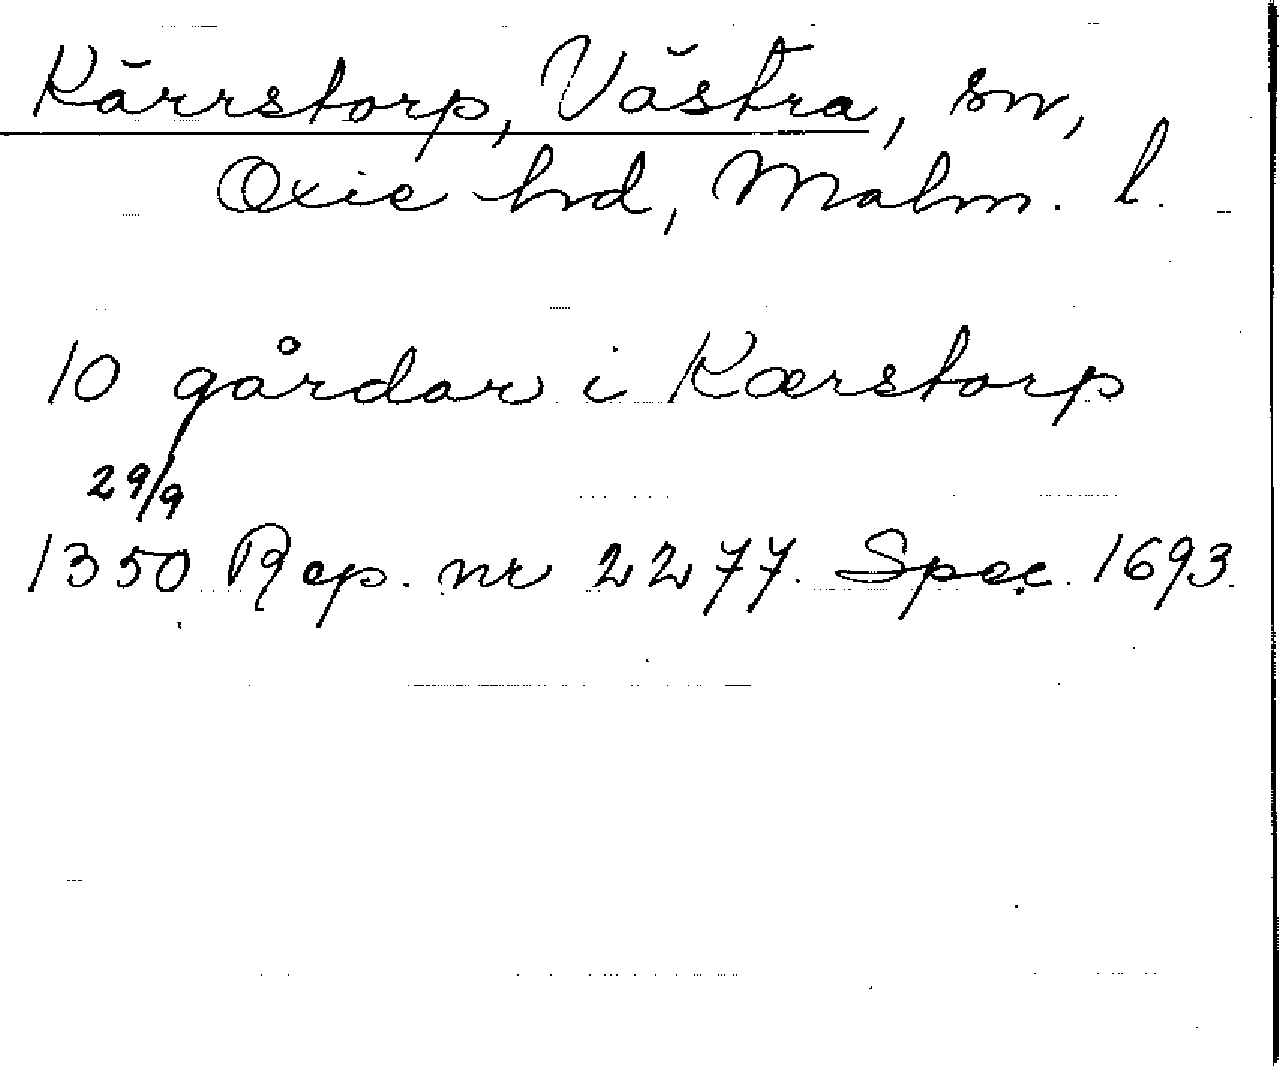 Kärrstorp, Västra, sn,
Oxie hd, Malm. l.
10 gårdar i Kærstorp
29/9
1350 Rep. nr 2277. Spec. 1693.